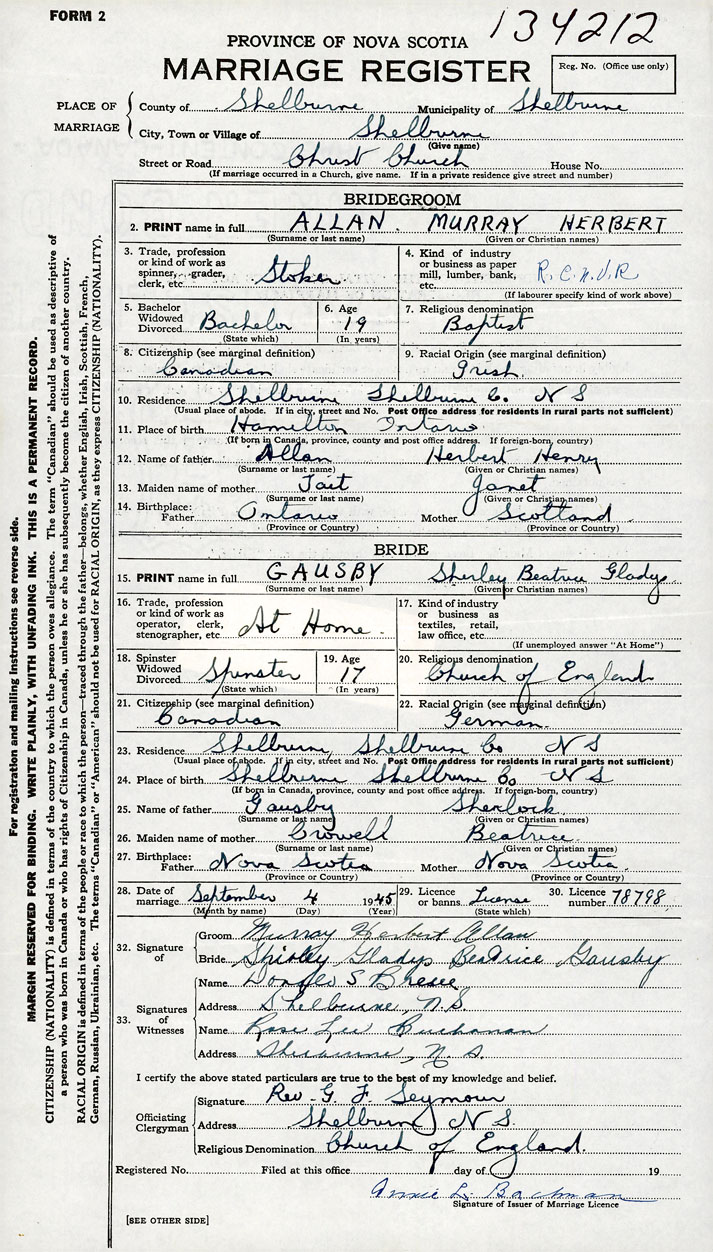 FORM 2
134212
PROVINCE OF NOVA SCOTIA
MARRIAGE REGISTER
Reg. No. (Office use only)
PLACE OF MARRIAGE
County of Shelburne Municipality of Shelburne
City, Town or Village of Shelburne
(Give name)
Street or Road Christ Church House No.
(If marriage occurred in a Church, give name. If in a private residence give street and number)
BRIDEGROOM
2. PRINT name in full ALLAN. MURRAY HERBERT
(Surname or last name) (Given or Christian names)
3. Trade, profession or kind of work as spinner, grader, clerk, etc. Stoker
4. Kind of industry or business as paper mill, lumber, bank, etc. R.C.N.V.R
(If labourer specify kind of work above)
5. Bachelor Widowed Divorced Bachelor
(State which)
6. Age 19
(In years)
7. Religious denomination
Baptist
8. Citizenship (see marginal definition)
Canadian
9. Racial Origin (see marginal definition)
Irish.
10. Residence Shelburne Shelburne Co. N S
(Usual place of abode. If in city, street and No. Post Office address for residents in rural parts not sufficient)
11. Place of birth Hamilton Ontario
(If born in Canada, province, county and post office address. If foreign-born, country)
12. Name of father Allan Herbert Henry
(Surname or last name) (Given or Christian names)
13. Maiden name of mother Tait Janet
(Surname or last name) (Given or Christian names)
14. Birthplace: Father Ontario Mother Scotland
(Province or Country) (Province or Country)
BRIDE
15. PRINT name in full GAUSBY Sherley Beatrice Gladys.
(Surname or last name) (Given or Christian names)
16. Trade, profession or kind of work as operator, clerk, stenographer, etc. At Home.
17. Kind of industry or business as textiles, retail, law office, etc.
(If unemployed answer "At Home")
18. Spinster Widowed Divorced Spinster
(State which)
19. Age 17
(In years)
20. Religious denomination
Church of England
21. Citizenship (see marginal definition)
Canadian
22. Racial Origin (see marginal definition)
German.
23. Residence Shelburne, Shelburne Co N S
(Usual place of abode. If in city, street and No. Post Office address for residents in rural parts not sufficient)
24. Place of birth Shelburne Shelburne Co. N S
(If born in Canada, province, county and post office address. If foreign-born, country)
25. Name of father Gausby Sherlock.
(Surname or last name) (Given or Christian names)
26. Maiden name of mother Crowell Beatrice
(Surname or last name) (Given or Christian names)
27. Birthplace: Father Nova Scotia Mother Nova Scotia.
(Province or Country) (Province or Country)
28. Date of marriage September 4 1945
(Month by name) (Day) (Year)
29. Licence or banns License
(State which)
30. Licence number 78798
32. Signature of
Groom Murray Herbert Allan
Bride Shirley Gladys Beatrice Gausby
33. Signatures of Witnesses
Name Donald S Bresee
Address Shelburne, N.S.
Name Rose Lee Buchanan
Address Shelburne, N.S.
I certify the above stated particulars are true to the best of my knowledge and belief.
Officiating Clergyman
Signature Rev. G F Seymour
Address Shelburne N S.
Religious Denomination Church of England.
Registered No. Filed at this office day of 19
Annie L. Bachman
Signature of Issuer of Marriage Licence
[SEE OTHER SIDE]
For registration and mailing instructions see reverse side.
MARGIN RESERVED FOR BINDING. WRITE PLAINLY, WITH UNFADING INK. THIS IS A PERMANENT RECORD.
CITIZENSHIP (NATIONALITY) is defined in terms of the country to which the person owes allegiance. The term "Canadian" should be used as descriptive of
a person who was born in Canada or who has rights of Citizenship in Canada, unless he or she has subsequently become the citizen of another country.
RACIAL ORIGIN is defined in terms of the people or race to which the person—traced through the father—belongs, whether English, Irish, Scottish, French,
German, Russian, Ukrainian, etc. The terms "Canadian" or "American" should not be used for RACIAL ORIGIN, as they express CITIZENSHIP (NATIONALITY).